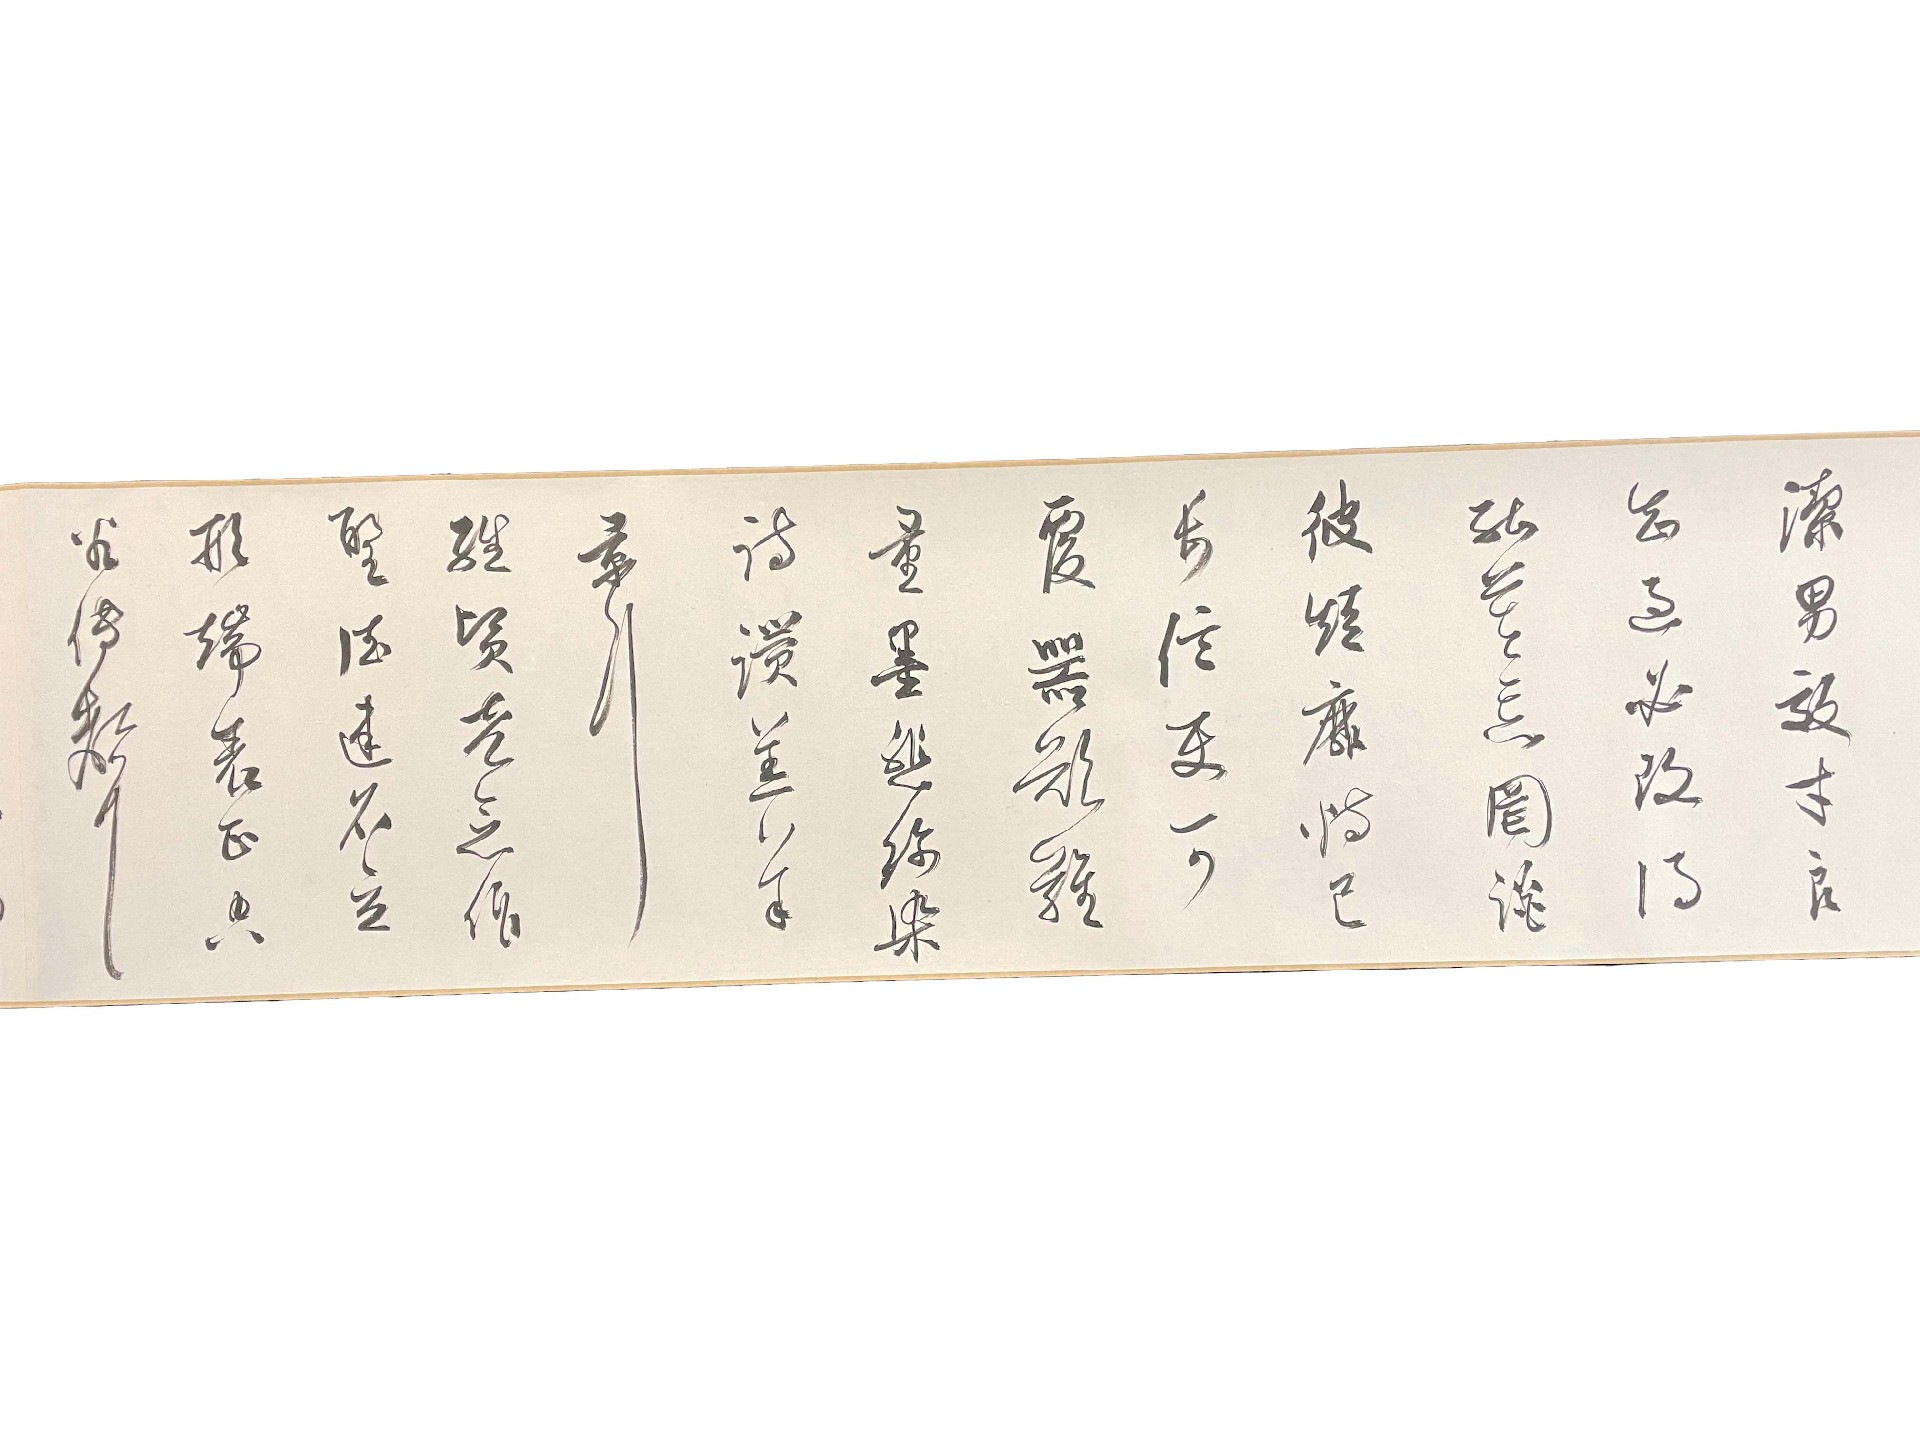 潔男效才良
知過必改得
能莫忘罔談
彼短靡恃己
長信使可
覆器欲難
量墨悲絲染
詩讚羔羊
景行
維賢克念作
聖德建名立
形端表正空
谷傳聲